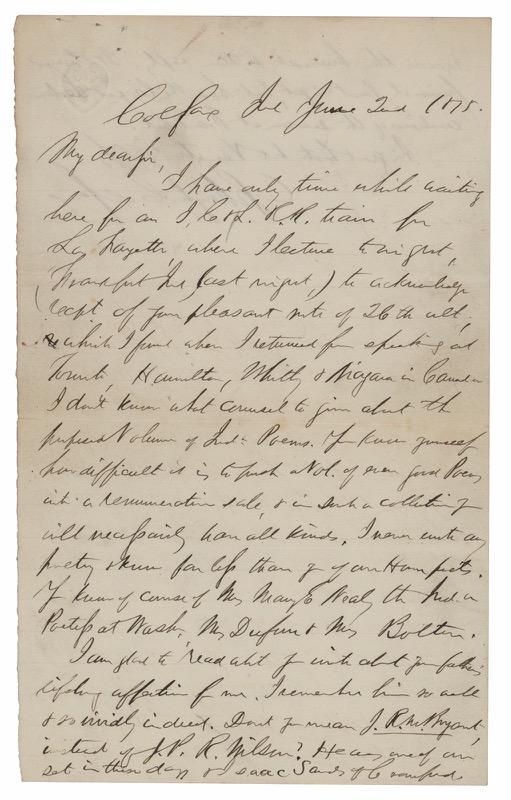 Colfax Ind June 2nd 1875.
My dear Sir,
I have only time while waiting
here for an I, C & L. R.R. train for
La Fayette, where I lecture tonight,
(Frankfort Ind last night,) to acknowledge
recpt of your pleasant note of 26th ult,
which I found when I returned from speaking at
Toronto, Hamilton, Whitby & Niagara in Canada
I don't know what counsel to give about the
proposed Volume of Inda Poems. You know yourself
how difficult it is to push a Vol. of even good Poems
into a remunerative sale, & in such a collection you
will necessarily have all kinds. I never write any
poetry & know far less than you of our Home poets.
You know of course of Mrs Mary E Nealy the Indiana
Poetess at Wash, Mrs Dufour & Mrs Bolton.
I am glad to read what you write about your father's
lifelong affection for me. I remember him so well
& so vividly indeed. Don't you mean J. R. M. Bryant,
instead of J. P. R. Wilson? He was one of our
set in those days & Isaac Sands of Crawford